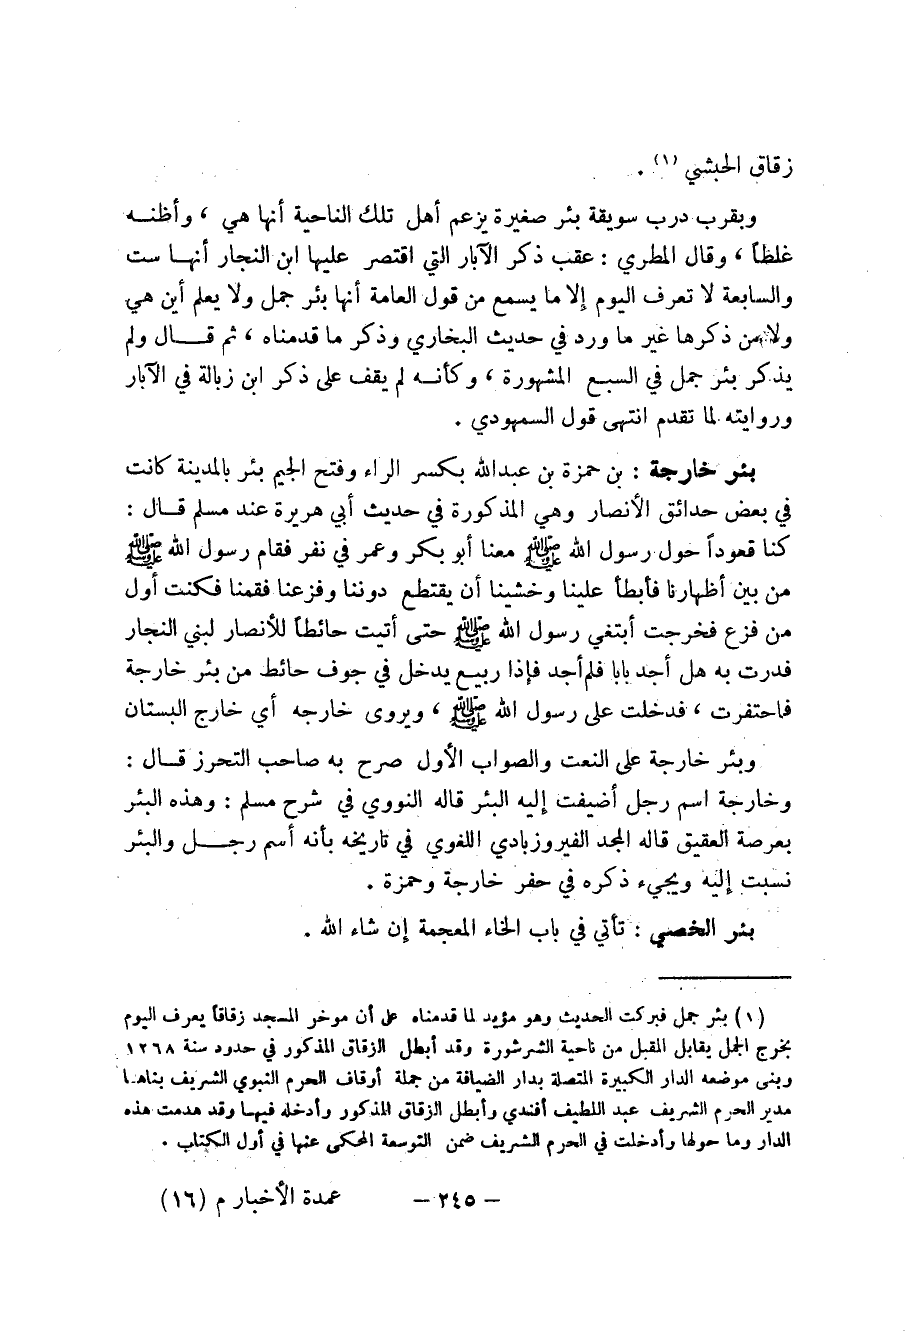 زقاق الحبشي (١) .
وبقرب درب سويقة بئر صغيرة يزعم أهل تلك الناحية أنها هي ، وأظنـه
غلظاً ، وقال المطري : عقب ذكر الآبار التي اقتصر عليها ابن النجار أنهـا ست
والسابعة لا تعرف اليوم إلا ما يسمع من قول العامة أنها بئر جمل ولا يعلم أين هي
ولا من ذكرها غير ما ورد في حديث البخاري وذكر ما قدمناه ، ثم قـــال ولم
يذكر بئر جمل في السبع المشهورة ، وكأنـه لم يقف على ذكر ابن زبالة في الآبار
وروايته لما تقدم انتهى قول السمهودي .
بئر خارجة : بن حمزة بن عبدالله بكسر الراء وفتح الجيم بئر بالمدينة كانت
في بعض حدائق الأنصار وهي المذكورة في حديث أبي هريرة عند مسلم قـال :
كنا قعوداً حول رسول الله ﷺ معنا أبو بكر وعمر في نفر فقام رسول الله ﷺ
من بين أظهارنا فأبطأ علينا وخشينا أن يقتطع دوننا وفزعنا فقمنا فكنت أول
من فزع فخرجت أبتغي رسول الله ﷺ حتى أتيت حائطاً للأنصار لبني النجار
فدرت به هل أجد بابا فلم أجد فإذا ربيع يدخل في جوف حائط من بئر خارجة
فاحتفرت ، فدخلت على رسول الله ﷺ ، ويروى خارجه أي خارج البستان
وبئر خارجة على النعت والصواب الأول صرح به صاحب التحرز قـال :
وخارجة اسم رجل أضيفت إليه البئر قاله النووي في شرح مسلم : وهذه البئر
بعرصة العقيق قاله المجد الفيروزبادي اللغوي في تاريخه بأنه أسم رجـــل والبئر
نسبت إليه ويجيء ذكره في حفر خارجة وحمزة .
بئر الخصي : تأتي في باب الخاء المعجمة إن شاء الله .
(١) بئر جمل فبركت الحديث وهو مؤيد لما قدمناه على أن موخر المسجد زقاقاً يعرف اليوم
بخرج الجمل يقابل المقبل من ناحية الشرشورة وقد أبطل الزقاق المذكور في حدود سنة ١٢٦٨
وبنى موضعه الدار الكبيرة المتصلة بدار الضيافة من جملة أوقاف الحرم النبوي الشريف بناهـا
مدير الحرم الشريف عبد اللطيف أفندي وأبطل الزقاق المذكور وأدخله فيهـا وقد هدمت هذه
الدار وما حولها وأدخلت في الحرم الشريف ضمن التوسعة المحكى عنها في أول الكتاب .
– ٢٤٥ – عمدة الأخبار م (١٦)